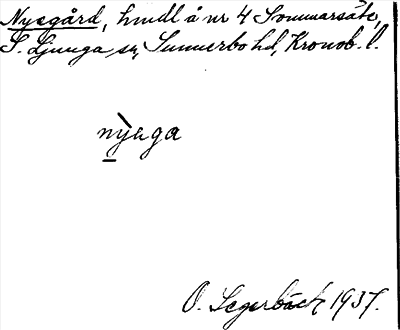 Nyegård, hmdl å nr 4 Sommarsäte,
S. Ljunga sn, Sunnerbo hd, Kronob. l.
nỳaga
O. Segerbäck 1937.